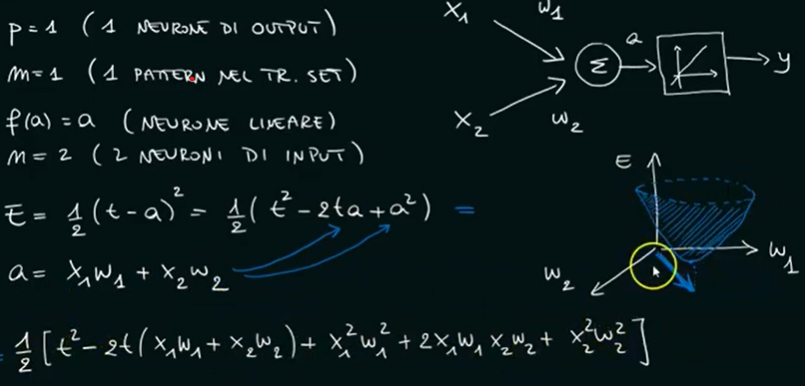 p=1 (1 NEURONE DI OUTPUT)
m=1 (1 PATTERN NEL TR. SET)
f(a) = a (NEURONE LINEARE)
m=2 (2 NEURONI DI INPUT)
E = 1/2 (t-a)² = 1/2 (t² - 2ta + a²) =
a = x₁w₁ + x₂w₂
= 1/2 [t² - 2t(x₁w₁ + x₂w₂) + x₁²w₁² + 2x₁w₁x₂w₂ + x₂²w₂²]
x₁ w₁
Σ a y
x₂ w₂
E
w₂ w₁